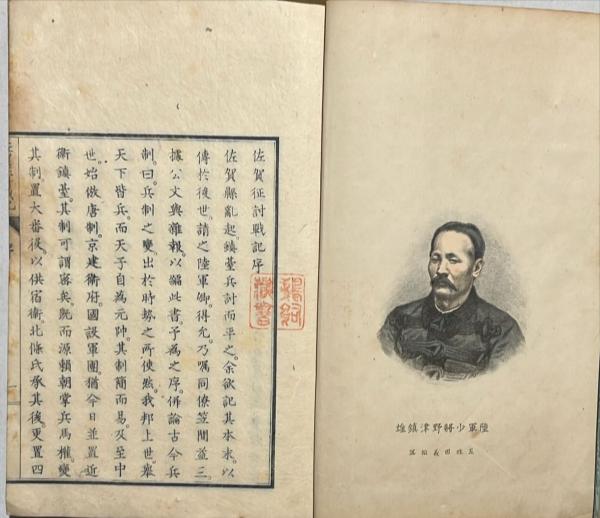 陸軍少將野津鎮雄
佐賀征討戰記序
佐賀縣亂起。鎮臺兵討而平之。余欲記其本末。以
傳於後世。請之陸軍卿。得允。乃囑同僚笠間益三
據公文與雜報。以編此書。予為之序。併論古今兵
制。曰。兵制之變。出於時勢之所使然。我邦上世。舉
天下皆兵。而天子自為元帥。其制簡而易。及至中
世。始倣唐制。京建衛府。國設軍團。猶今日並置近
衛鎮臺。其制可謂密矣。既而源賴朝掌兵馬權。變
其制置大番役。以供宿衛。北條氏承其後。更置四